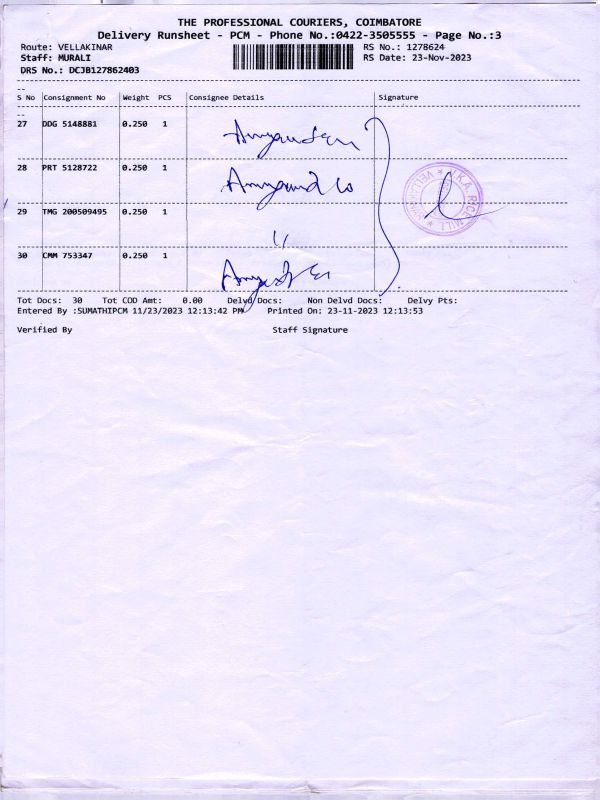 THE PROFESSIONAL COURIERS, COIMBATORE
Delivery Runsheet - PCM - Phone No.:0422-3505555 - Page No.:3
Route: VELLAKINAR RS No.: 1278624
Staff: MURALI RS Date: 23-Nov-2023
DRS No.: DCJB127862403
S No Consignment No Weight PCS Consignee Details Signature
27 DDG 5148881 0.250 1
28 PRT 5128722 0.250 1
29 TMG 200509495 0.250 1
30 CMM 753347 0.250 1
RICE MILL
Tot Docs: 30 Tot COD Amt: 0.00 Delvd Docs: Non Delvd Docs: Delvy Pts:
Entered By :SUMATHIPCM 11/23/2023 12:13:42 PM Printed On: 23-11-2023 12:13:53
Verified By Staff Signature